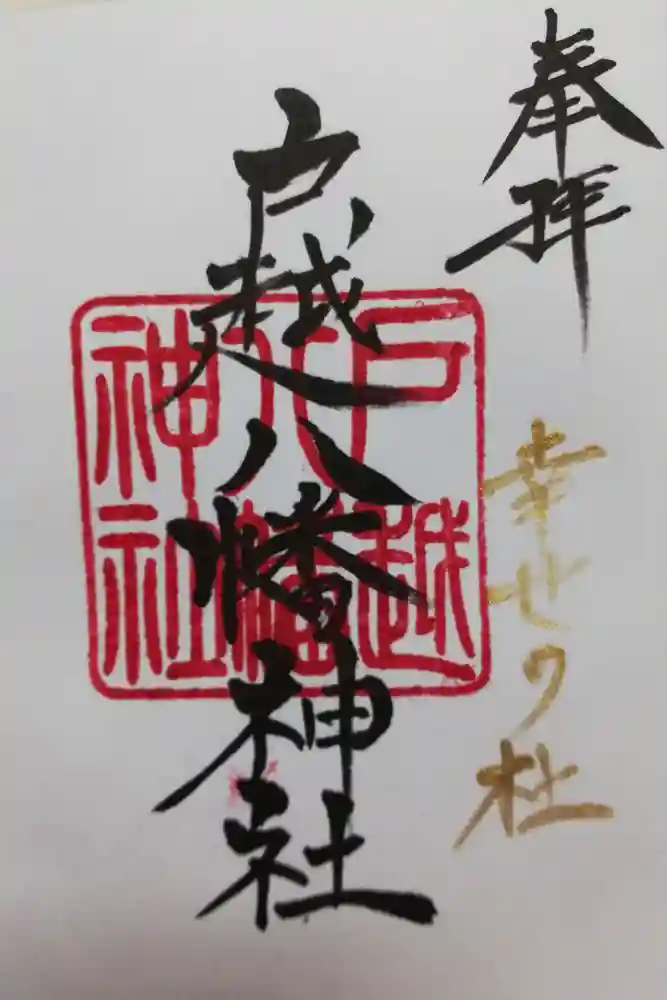 奉拝
幸せの杜
戸越八幡神社
戸越八幡神社